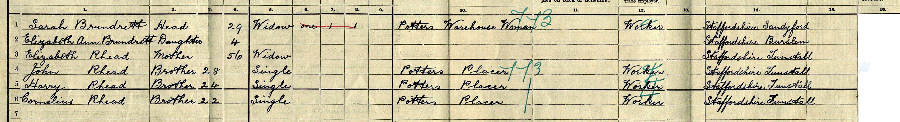 1 Sarah Brundrett Head 29 Widow one 1 1 Potters Warehouse Woman Worker Staffordshire Sandyford
2 Elizabeth Ann Brundrett Daughter 4 Staffordshire Burslem
3 Elizabeth Rhead Mother 50 Widow Staffordshire Tunstall
4 John Rhead Brother 28 Single Potters Placer Worker Staffordshire Tunstall
5 Harry Rhead Brother 24 Single Potters Placer Worker Staffordshire Tunstall
6 Cornelius Rhead Brother 22 Single Potters Placer Worker Staffordshire Tunstall
7